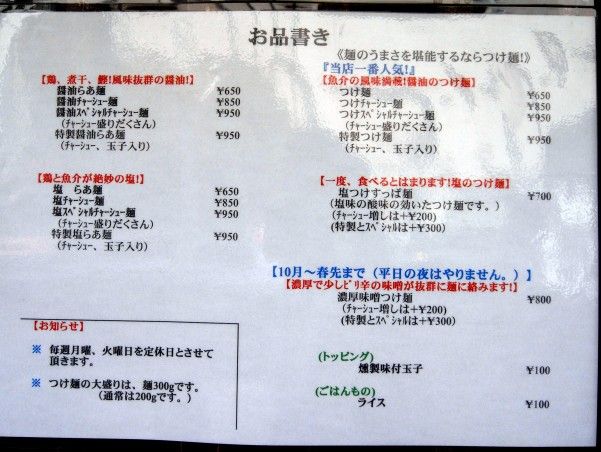 お品書き
《麺のうまさを堪能するならつけ麺!》
【鶏、煮干、鰹!風味抜群の醤油!】
醤油らあ麺 ¥650
醤油チャーシュー麺 ¥850
醤油スペシャルチャーシュー麺 ¥950
(チャーシュー盛りだくさん)
特製醤油らあ麺 ¥950
(チャーシュー、玉子入り)
【鶏と魚介が絶妙の塩!】
塩 らあ麺 ¥650
塩チャーシュー麺 ¥850
塩スペシャルチャーシュー麺 ¥950
(チャーシュー盛りだくさん)
特製塩らあ麺 ¥950
(チャーシュー、玉子入り)
【お知らせ】
※ 毎週月曜、火曜日を定休日とさせて
頂きます。
※ つけ麺の大盛りは、麺300gです。
(通常は200gです。)
『当店一番人気!』
【魚介の風味満載!醤油のつけ麺】
つけ麺 ¥650
つけチャーシュー麺 ¥850
つけスペシャルチャーシュー麺 ¥950
(チャーシュー盛りだくさん)
特製つけ麺 ¥950
(チャーシュー、玉子入り)
【一度、食べるとはまります!塩のつけ麺】
塩つけすっぱ麺 ¥700
(塩味の酸味の効いたつけ麺です。)
(チャーシュー増しは+¥200)
(特製とスペシャルは+¥300)
【10月~春先まで(平日の夜はやりません。)】
【濃厚で少しピリ辛の味噌が抜群に麺に絡みます!】
濃厚味噌つけ麺 ¥800
(チャーシュー増しは+¥200)
(特製とスペシャルは+¥300)
(トッピング)
燻製味付玉子 ¥100
(ごはんもの)
ライス ¥100